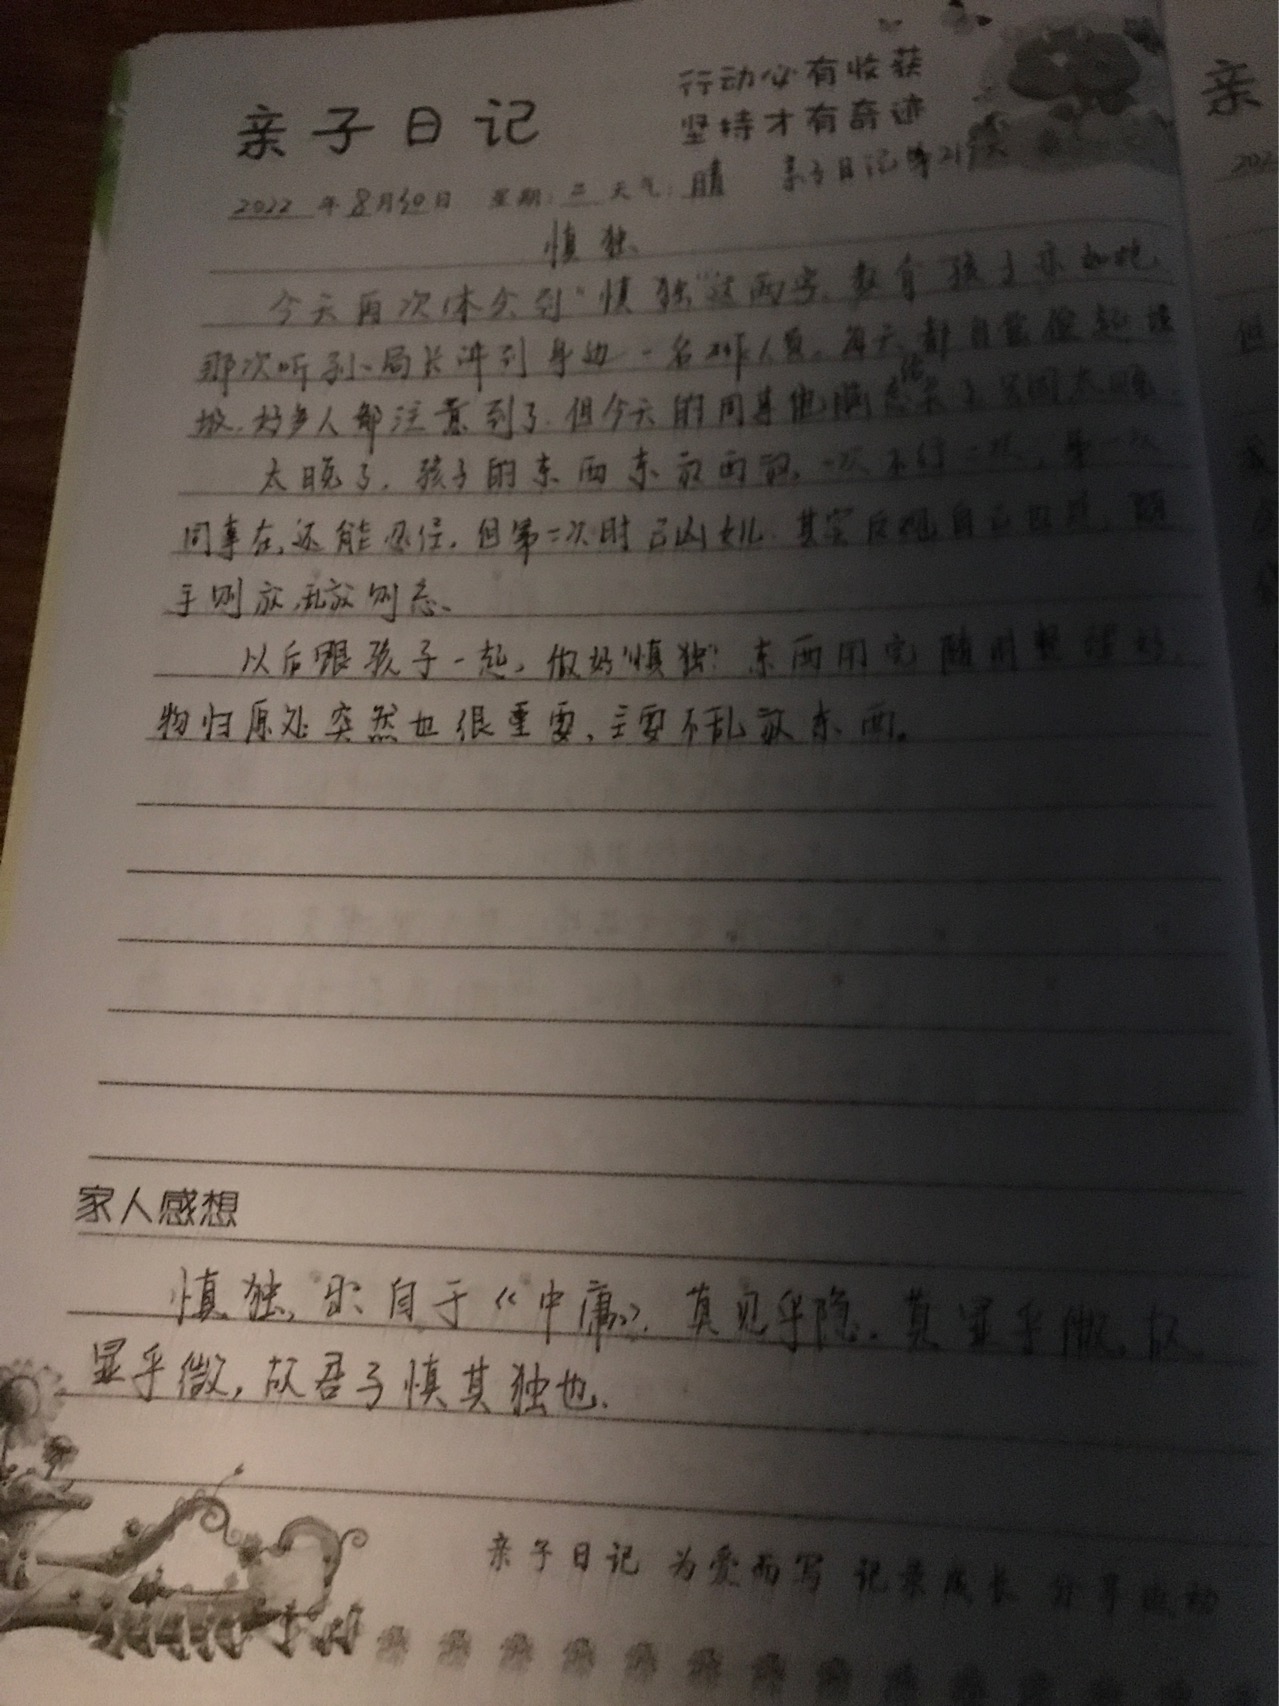 亲子日记
行动必有收获
坚持才有奇迹
2022年8月10日 星期:三 天气:晴 亲子日记第219天
慎独
今天再次体会到“慎独”这两字,教育孩子亦如此
那次听到局长讲到身边一名工作人员,每天都自觉捡起垃
圾,好多人都注意到了,但今天的同事他
太晚了,孩子的东西东放西放,一次不行一次,第一次
同事在,还能忍住,但第二次时已凶女儿,其实反观自己也是,随
手则放,乱放则忘、
以后跟孩子一起,做好“慎独”东西用完随时整理好,
物归原处突然也很重要,主要不乱放东西。
家人感想
慎独,出自于《中庸》,莫见乎隐,莫显乎微,故
显乎微,故君子慎其独也.
亲子日记 为爱而写 记录成长 分享感动
亲
202
但